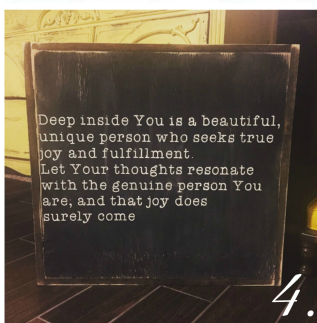 Deep inside You is a beautiful,
unique person who seeks true
joy and fulfillment.
Let Your thoughts resonate
with the genuine person You
are, and that joy does
surely come
4.